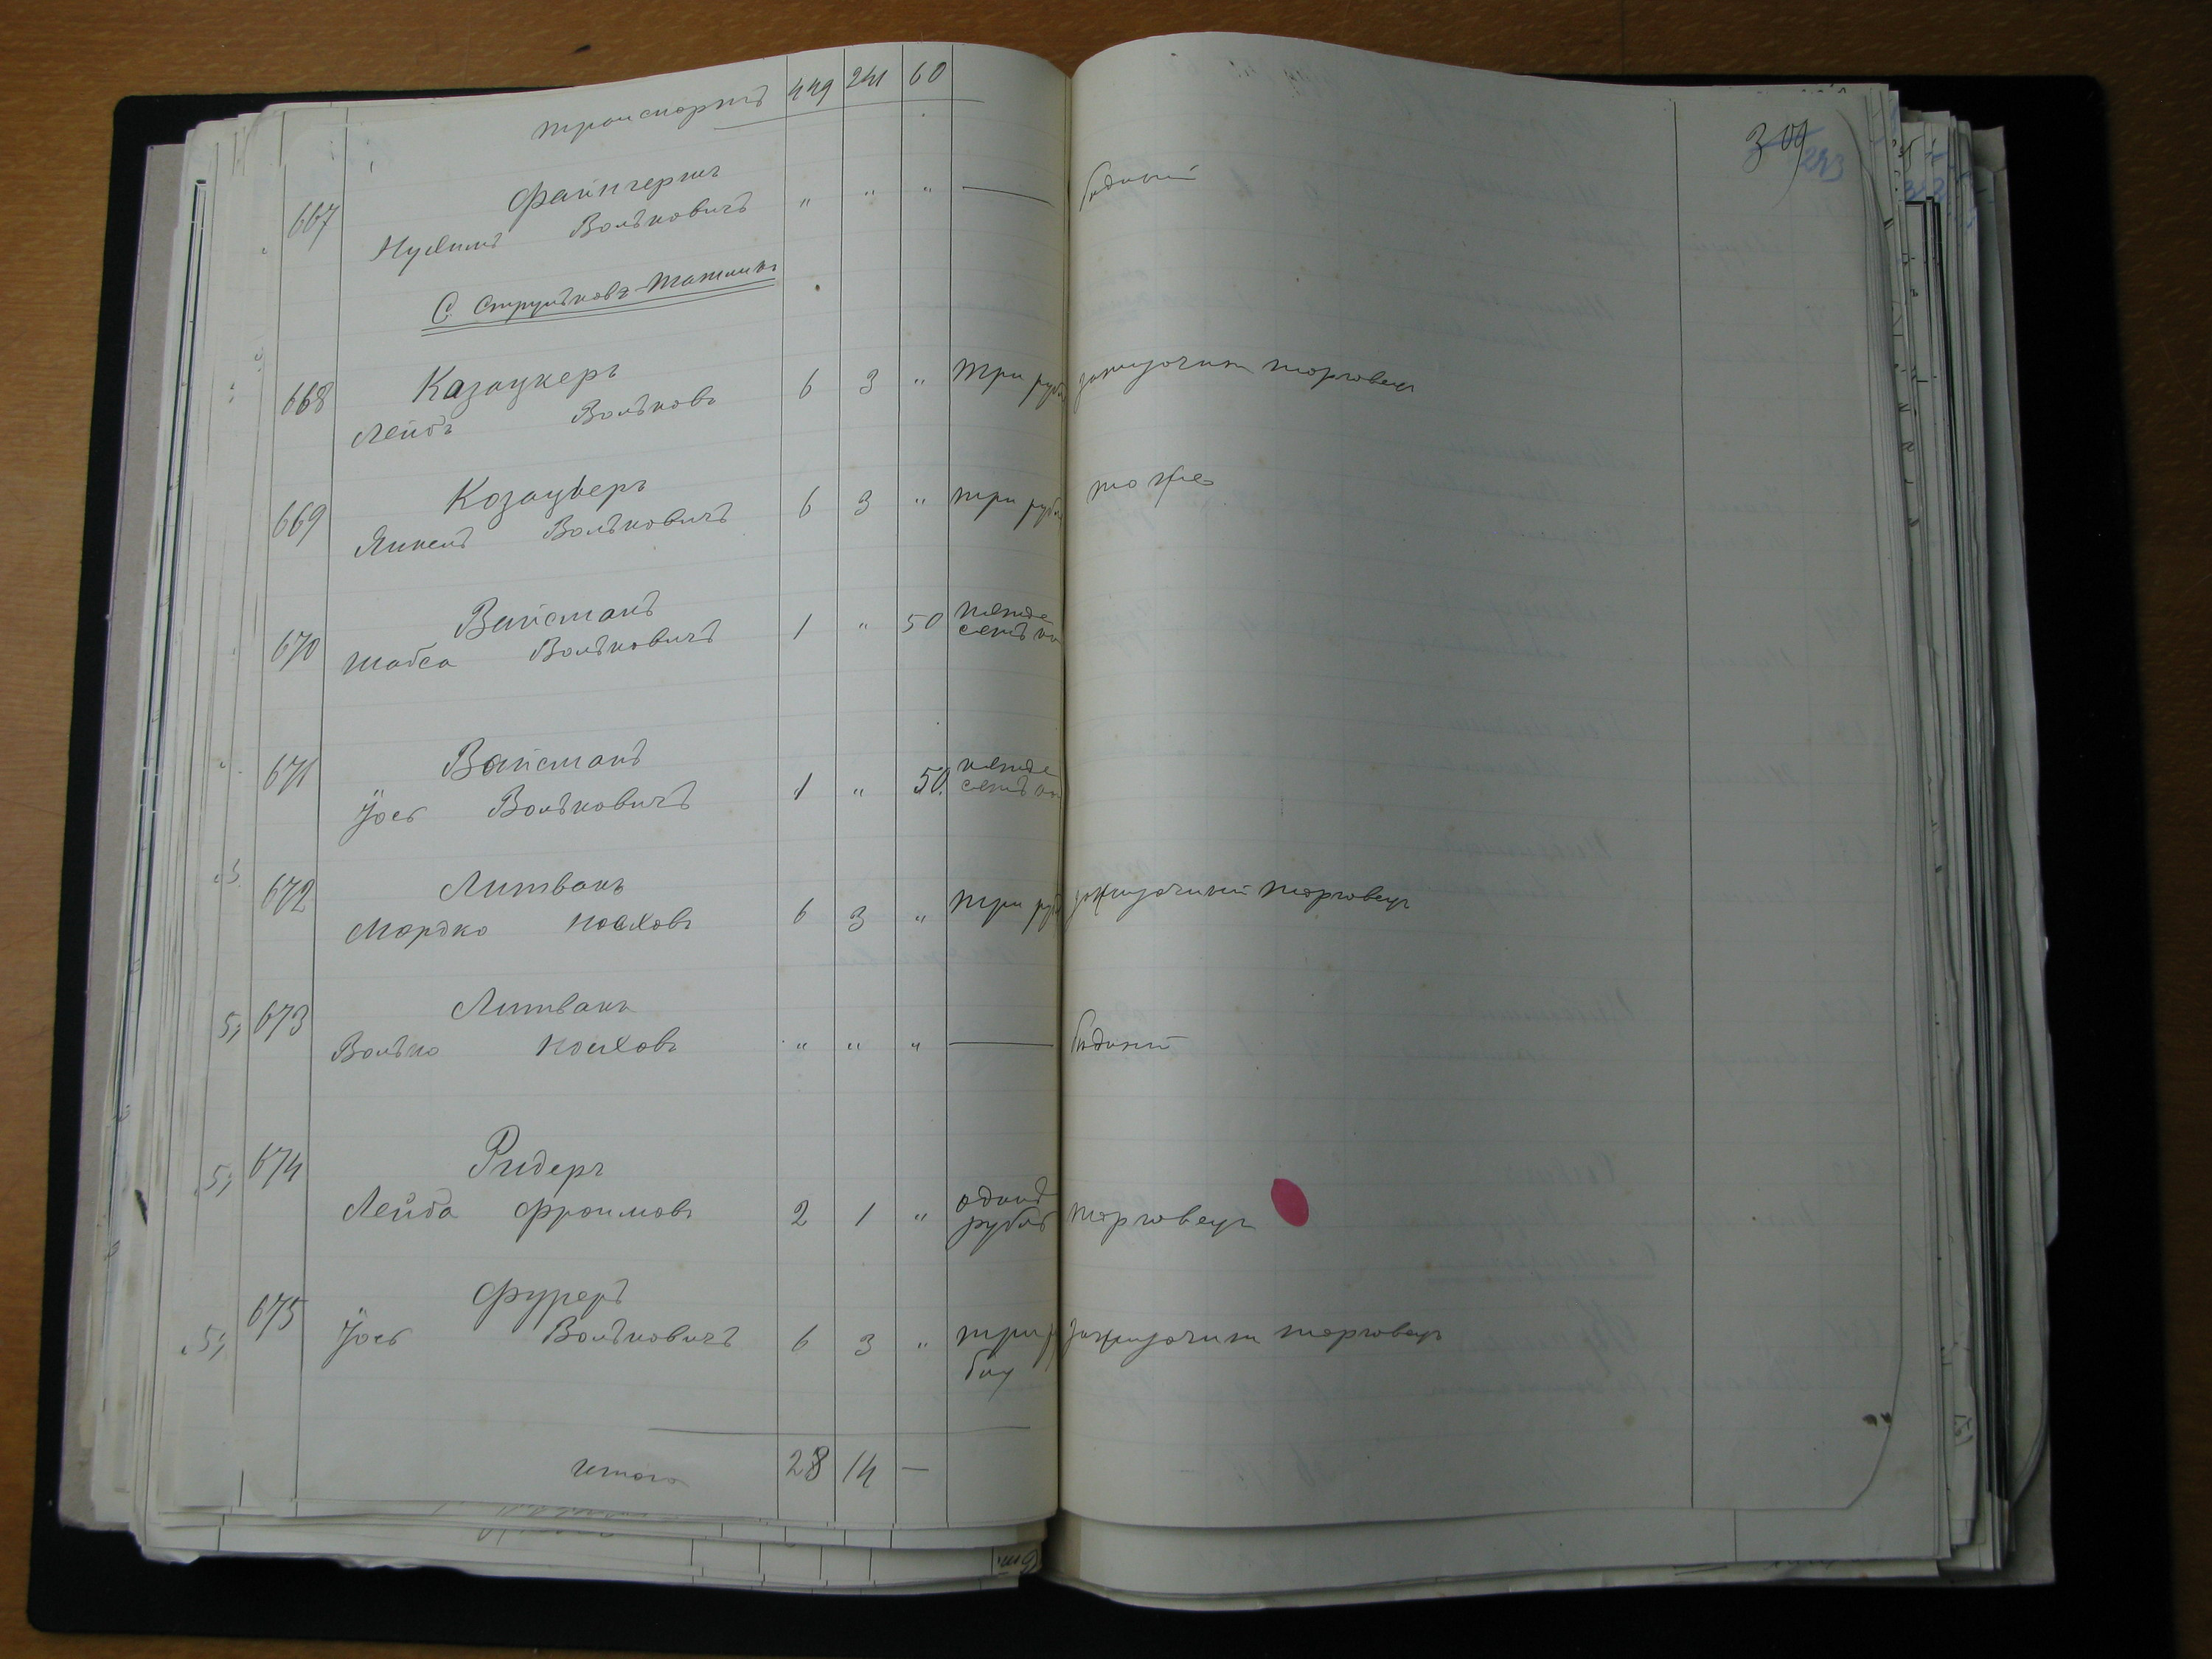 транспортъ 449 241 60
309
243
Файнгершъ
667 Нухимъ Вольковичъ " " " — бѣдный
С.
668 Казацкеръ
Лейбъ Вольковъ 6 3 " три руб зажиточный торговецъ
669 Козацкеръ
Янкель Вольковичъ 6 3 " три руб тоже
670 Вайсманъ
Шабса Вольковичъ 1 " 50 пятьде
сятъ ко
671 Вайсманъ
Іось Вольковичъ 1 " 50 пятьде
сятъ ко
672 Литвакъ
Мордко Ноиховъ 6 3 " три руб зажиточный торговецъ
5; 673 Литвакъ
Волько Ноиховъ " " " — бѣдный
5; 674 Ридеръ
Лейба Фроимовъ 2 1 " одинъ
рубль торговецъ
5; 675 Фуреръ
Іось Вольковичъ 6 3 " три р зажиточный торговецъ
бля
итого 28 14 —